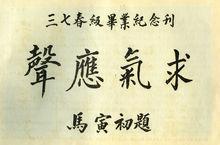 三七春級畢業紀念刊
聲應氣求
馬寅初題